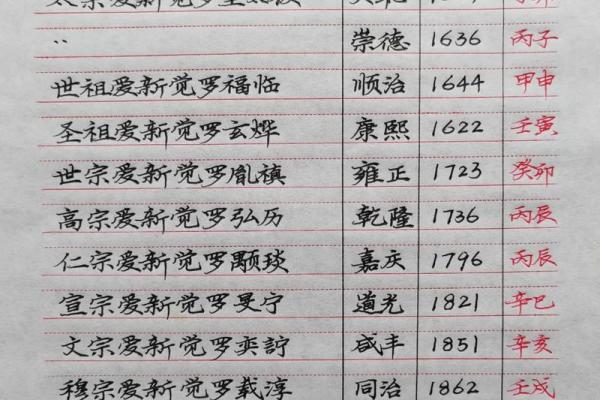 太宗爱新觉罗
〃 崇德 1636 丙子
世祖爱新觉罗福临 顺治 1644 甲申
圣祖爱新觉罗玄烨 康熙 1622 壬寅
世宗爱新觉罗胤禛 雍正 1723 癸卯
高宗爱新觉罗弘历 乾隆 1736 丙辰
仁宗爱新觉罗颙琰 嘉庆 1796 丙辰
宣宗爱新觉罗旻宁 道光 1821 辛巳
文宗爱新觉罗奕詝 咸丰 1851 辛亥
穆宗爱新觉罗载淳 同治 1862 壬戌